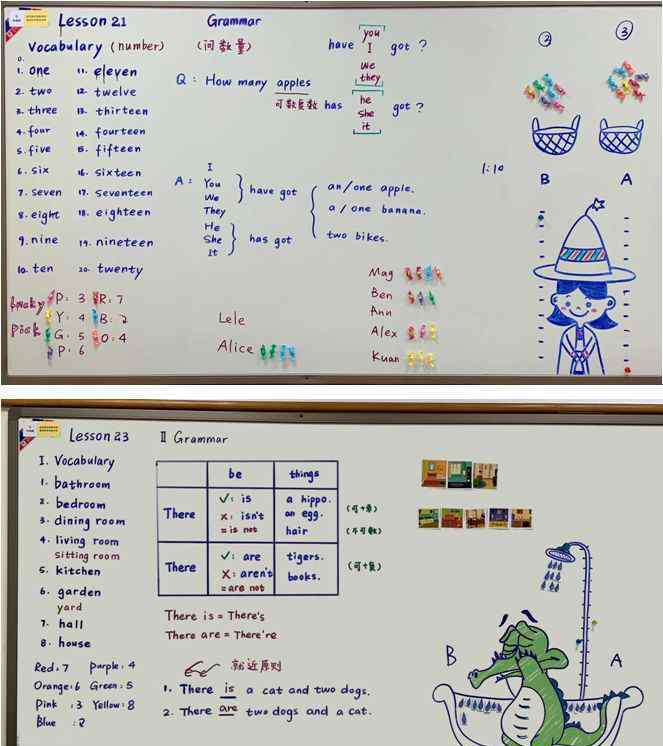 Lesson 21
Grammar
Vocabulary (number)
(问数量)
0.
1. one
2. two
3. three
4. four
5. five
6. six
7. seven
8. eight
9. nine
10. ten
11. eleven
12. twelve
13. thirteen
14. fourteen
15. fifteen
16. sixteen
17. seventeen
18. eighteen
19. nineteen
20. twenty
Q: How many apples
可数复数
have
you
I
we
they
got ?
has
he
she
it
got ?
A:
I
You
We
They
have got
He
She
It
has got
an/one apple.
a / one banana.
two bikes.
②
③
B
A
1:10
Lucky
Pick
P: 3
R: 7
Y: 4
B: 2
G: 5
O: 4
P: 6
Lele
Alice
Mag
Ben
Ann
Alex
Kuan
Lesson 23
II Grammar
I. Vocabulary
1. bathroom
2. bedroom
3. dining room
4. living room
sitting room
5. kitchen
6. garden
yard
7. hall
8. house
Red: 7
Purple: 4
Orange: 6
Green: 5
Pink : 3
Yellow: 8
Blue : 2
be
things
There
✓: is
×: isn't
= is not
a hippo.
an egg.
hair
(可+单)
(不可数)
There
✓: are
×: aren't
= are not
tigers.
books.
(可+复)
There is = There's
There are = There're
就近原则
1. There is a cat and two dogs.
2. There are two dogs and a cat.
B
A